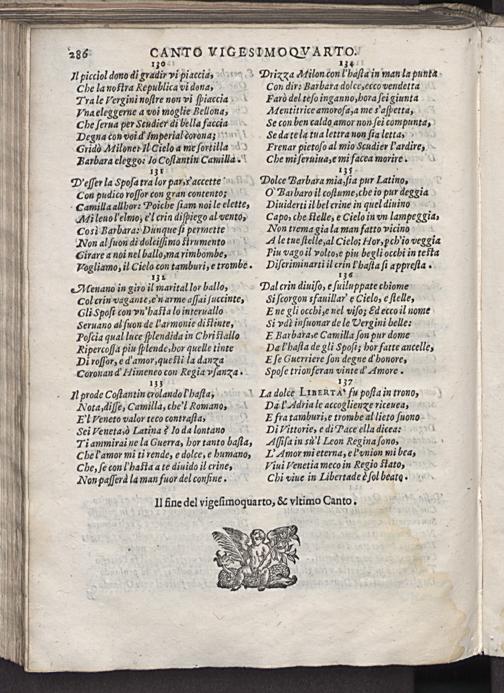 286
CANTO VIGESIMOQVARTO.
130
Il picciol dono di gradir vi piaccia,
Che la nostra Republica vi dona,
Tra le Vergini nostre non vi spiaccia
Vna eleggerne a voi moglie Bellona,
Che serua per Scudier di bella faccia
Degna con voi d'Imperial corona;
Gridò Milone: Il Cielo a me sortilla
Barbara eleggo: Io Costantin Camilla.
131
D'esser la Sposa tra lor par, s'accette
Con pudico rossor con gran contento;
Camilla allhor: Poiche siam noi le elette,
Mi leuo l'elmo, e'l crin dispiego al vento,
Così Barbara: Dunque si permette
Non al suon di dolcissimo strumento
Girare a noi nel ballo, ma rimbombe,
Vogliamo, il Cielo con tamburi, e trombe.
132
Menano in giro il marital lor ballo,
Col crin vagante, e'n arme assai succinte,
Gli Sposi con vn'hasta lo interuallo
Seruano al suon de l'armonie distinte,
Poscia qual luce splendida in Christallo
Ripercossa piu splende, hor quelle tinte
Di rossor, e d'amor, questi la danza
Coronan d'Himeneo con Regia vsanza.
133
Il prode Costantin crolando l'hasta,
Nota, disse, Camilla, che'l Romano,
E'l Veneto valor teco contrasta,
Sei Veneta, ò Latina è Io da lontano
Ti ammirai ne la Guerra, hor tanto basta,
Che l'amor mi ti rende, e dolce, e humano,
Che, se con l'hasta a te diuido il crine,
Non passerà la man fuor del confine.
134
Drizza Milon con l'hasta in man la punta
Con dir: Barbara dolce, ecco vendetta
Farò del teso inganno, hora sei giunta
Mentitrice amorosa, a me s'aspetta,
Se con ben caldo amor non sei compunta,
Se da te la tua lettra non sia letta,
Frenar pietoso al mio Scudier l'ardire,
Che mi seruiua, e mi facea morire.
135
Dolce Barbara mia, sia pur Latino,
O Barbaro il costume, che io pur deggia
Diuiderti il bel crine in quel diuino
Capo, che stelle, e Cielo in vn lampeggia,
Non trema già la man fatto vicino
A le tue stelle, al Cielo; Hor, pch'io veggia
Piu vago il volto, e piu begli occhi in testa
Discriminarti il crin l'hasta si appresta.
136
Dal crin diuiso, e suiluppate chiome
Si scorgon sfauillar e Cielo, e stelle,
E ne gli occhi, e nel viso; Ed ecco il nome
Si vdì insuonar de le Vergini belle:
E Barbara, e Camilla son pur dome
Da l'hasta de gli Sposi; hor fatte ancelle,
E se Guerriere son degne d'honore,
Spose trionferan vinte d'Amore.
137
La dolce LIBERTA' fu posta in trono,
Dà l'Adria le accoglienze riceuea,
E fra tamburi, e trombe al lieto suono
Di Vittorie, e di Pace ella dicea:
Assisa in sù'l Leon Regina sono,
L'Amor mi eterna, e l'vnion mi bea,
Viui Venetia meco in Regio stato,
Chi viue in Libertade è sol beato.
Il fine del vigesimoquarto, & vltimo Canto.